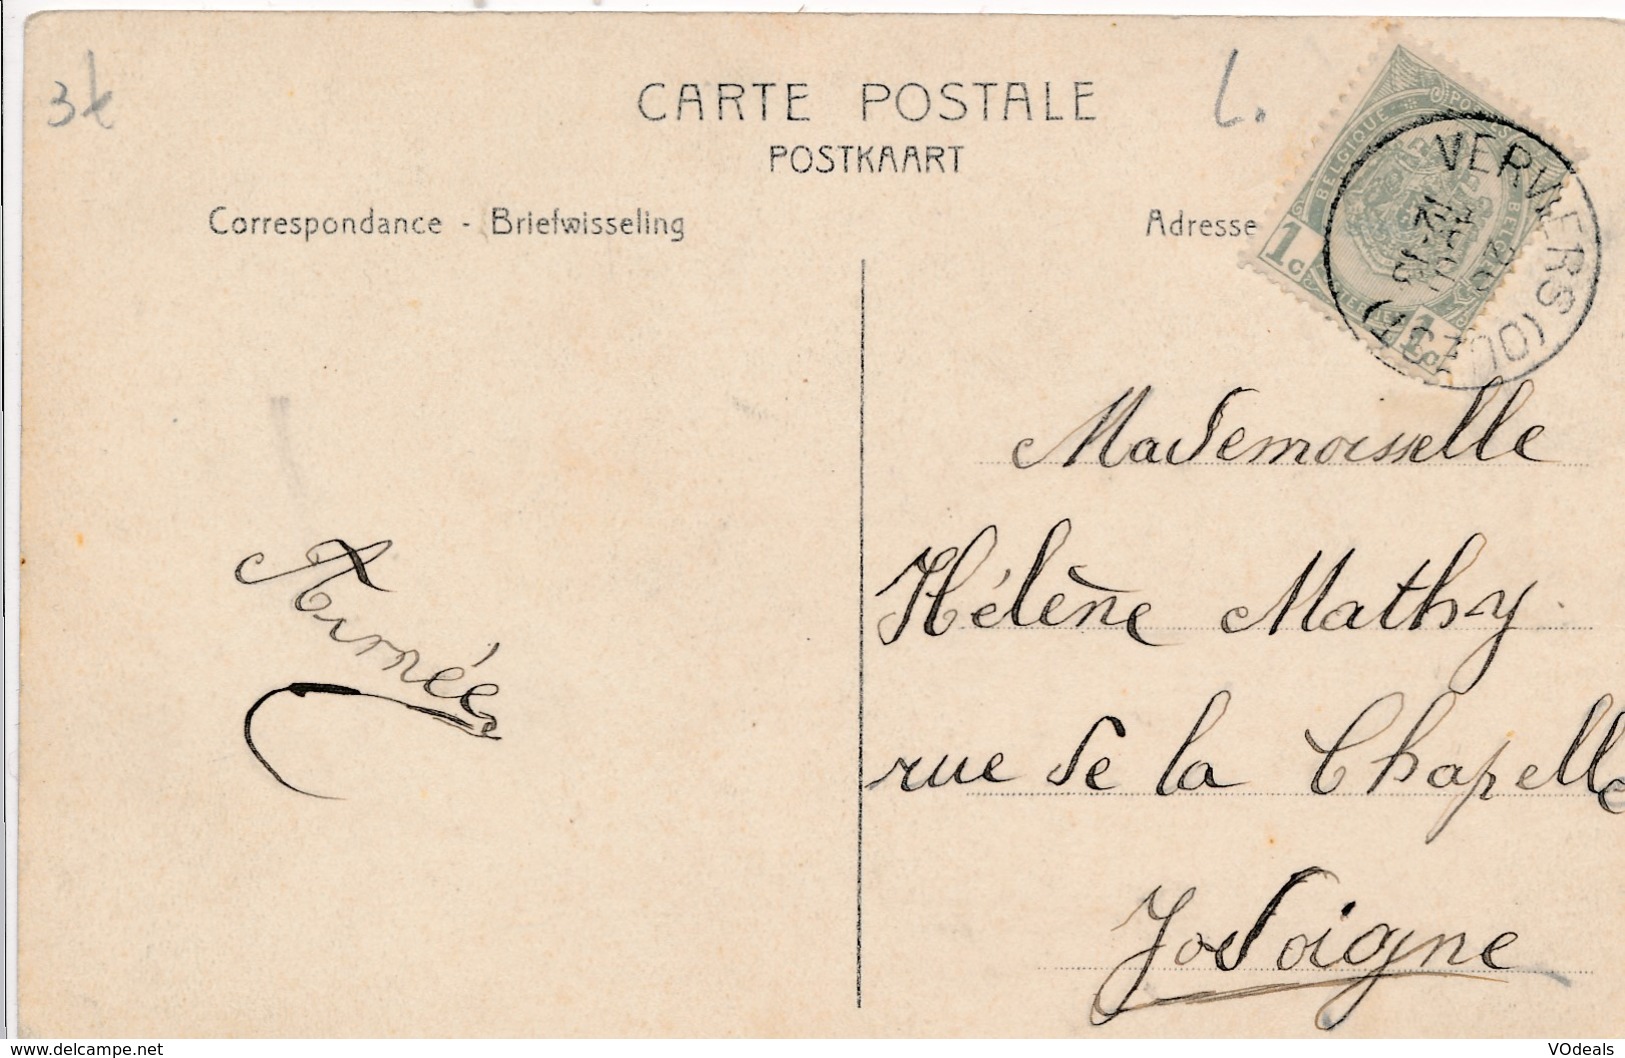 3€
CARTE POSTALE
POSTKAART
L.
Correspondance - Briefwisseling
Adresse
BELGIQUE POSTES BELGIE
1c 1c
VERVIERS (OUEST)
Mademoiselle
Hélène Mathy
rue de la Chapelle
Jodoigne
Aimée
www.delcampe.net
VOdeals